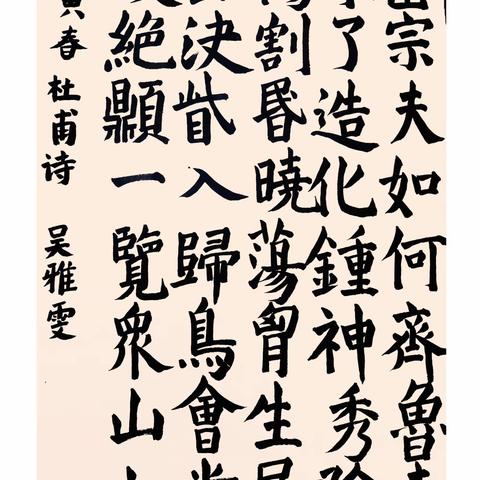 宗夫如何齊魯
了造化鍾神秀
割昬曉蕩胷生
決眥入歸鳥會
絶顛一覽衆山
寅春 杜甫诗 吴雅雯